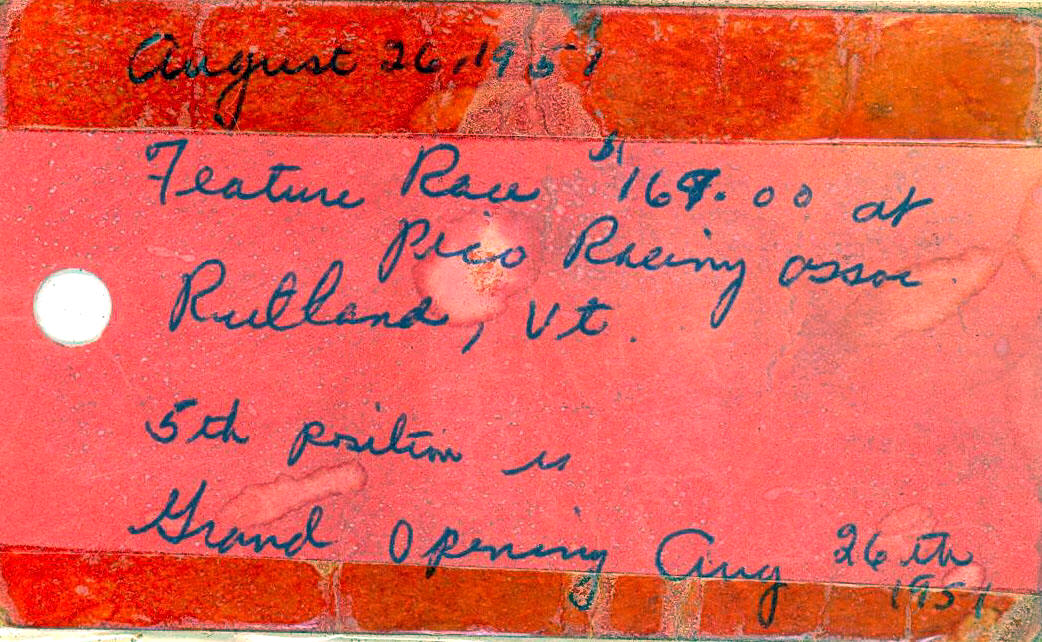 August 26, 1951
Feature Race at
Pico Racing assoc.
Rutland, Vt.
5th position is
Grand Opening Aug 26th
1951